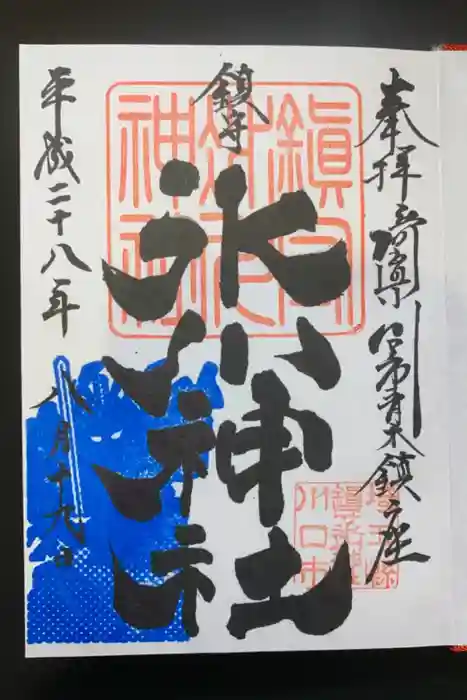 奉拝 埼玉県川口市青木鎮座
鎮守
氷川神社
平成二十八年
八月十九日
鎮守
氷川
神社
埼玉縣
川口市